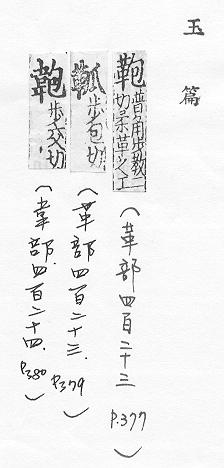 玉篇
鞄 普角步教二切柔革之工
(革部四百二十三 P.377)
㼡 步包切
(革部四百二十三. P.379)
䩝 步交切
(韋部四百二十四. P.380)